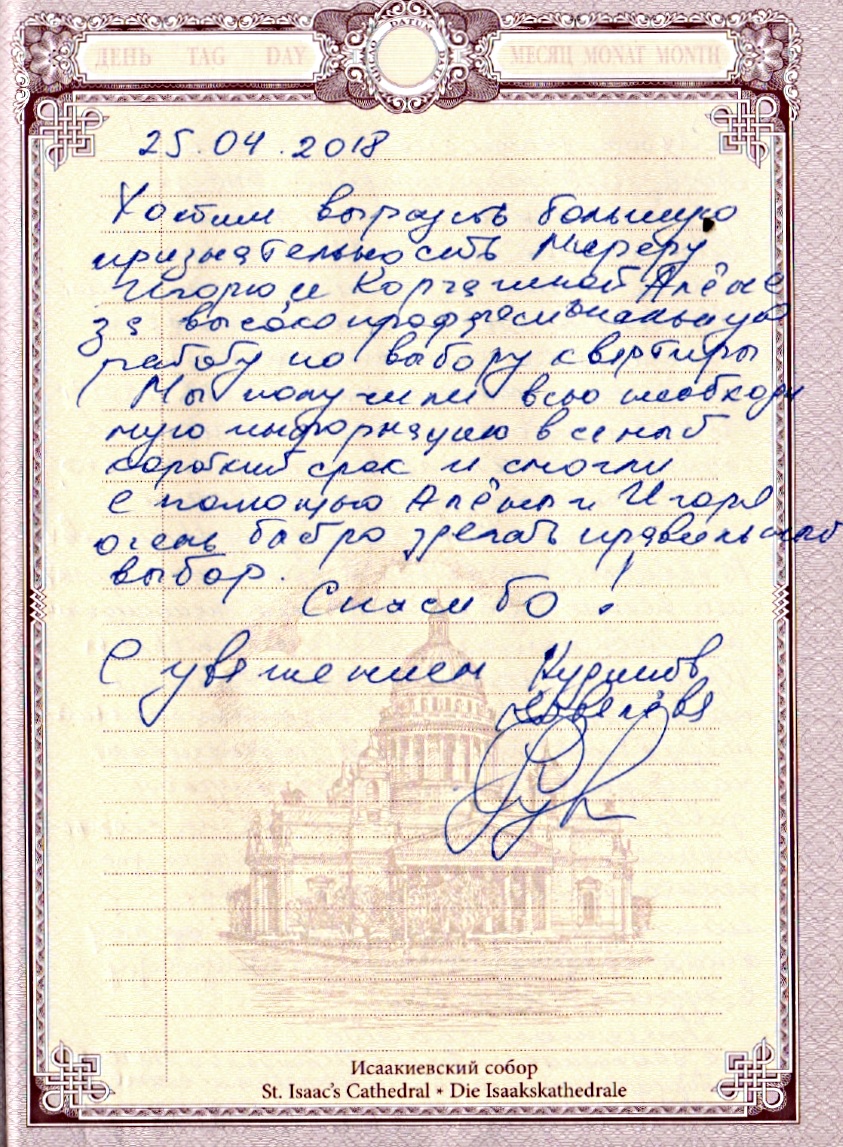 ДЕНЬ TAG DAY
DATUM
МЕСЯЦ MONAT MONTH
25.04.2018
Хотим выразить большую
признательность
Игорю и Корчагиной Алёне
за высокопрофессиональную
работу по выбору квартиры
Мы получили всю необходи
мую информацию в самый
короткий срок и смогли
с помощью Алёны и Игоря
очень быстро сделать правильный
выбор.
Спасибо!
С уважением
Исаакиевский собор
St. Isaac's Cathedral * Die Isaakskathedrale